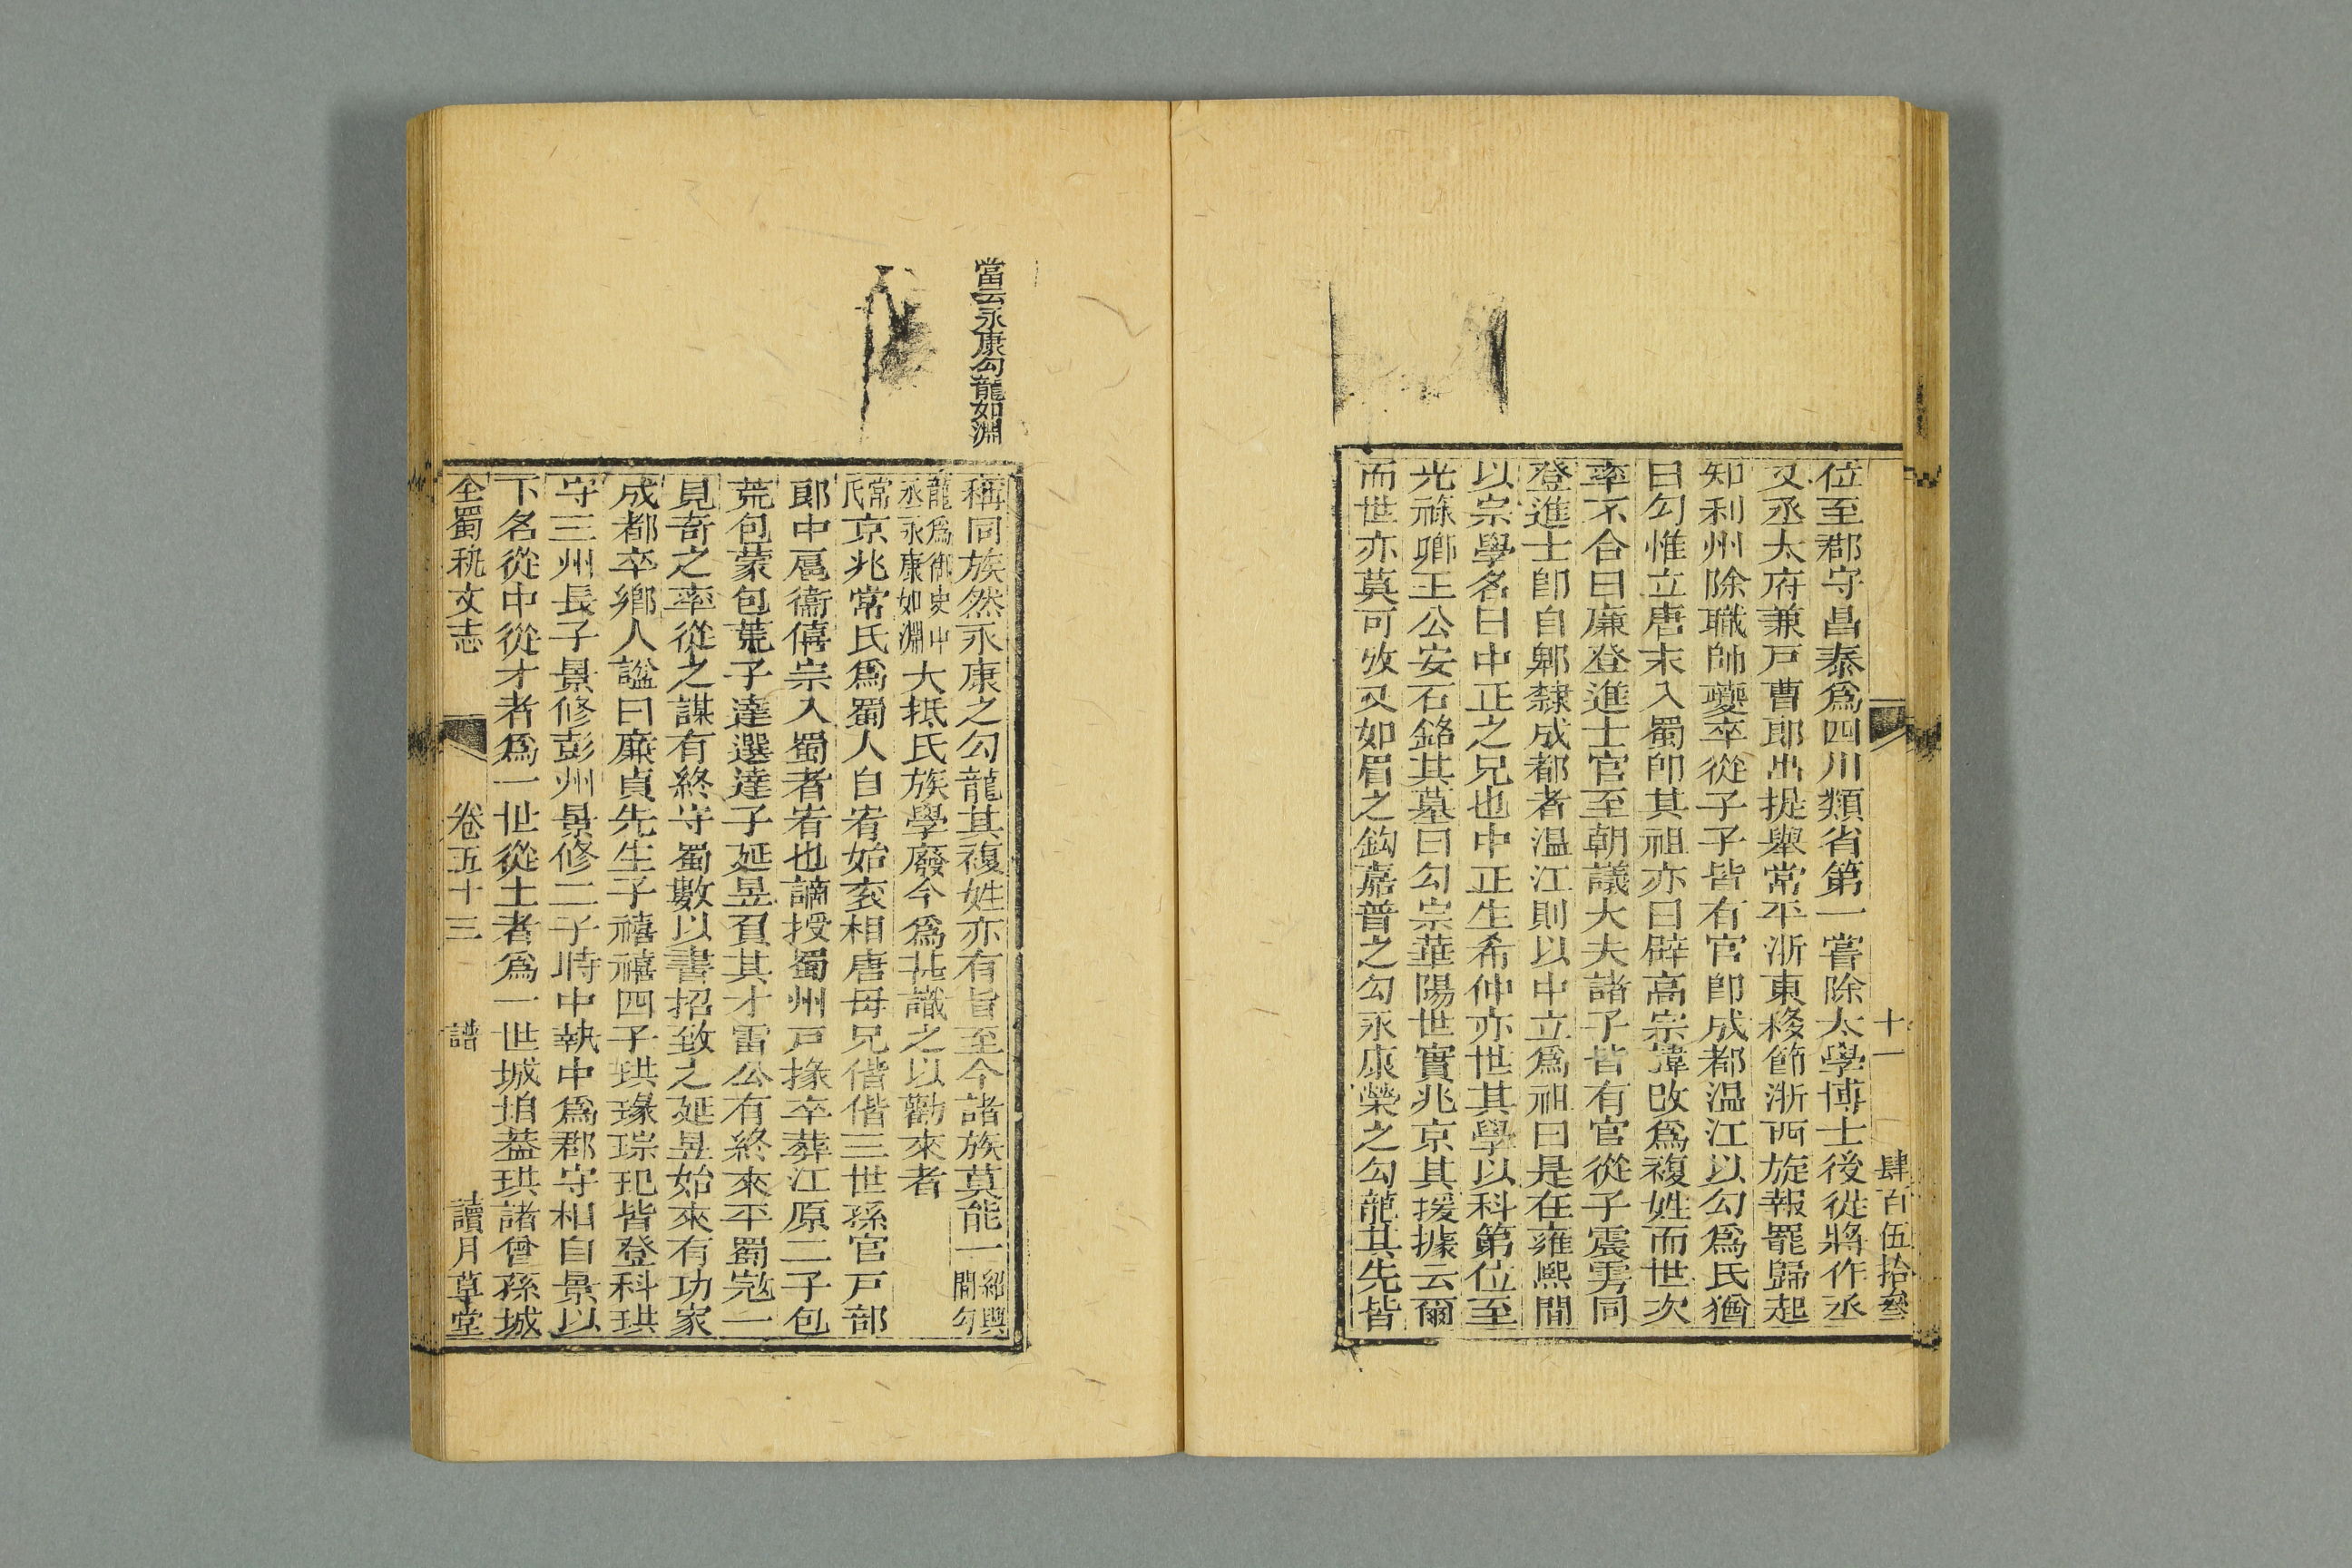 十一
肆百伍拾叁
位至郡守昌泰爲四川類省第一嘗除太學博士後從將作丞
又丞太府兼戸曹郎出提舉常平浙東移節浙西旋報罷歸起
知利州除職帥夔卒從子子皆有官卽成都温江以勾爲氏猶
曰勾惟立唐末入蜀卽其祖亦曰辟高宗諱改爲複姓而世次
率不合曰廉登進士官至朝議大夫諸子皆有官從子震雱同
登進士卽自郫隸成都者温江則以中立爲祖曰是在雍熙間
以宗學名曰中正之兄也中正生希仲亦世其學以科第位至
光祿卿王公安石銘其墓曰勾宗華陽世實兆京其援據云爾
而世亦莫可攷又如眉之鈎嘉普之勾永康榮之勾龍其先皆
當云永康勾龍如淵
稱同族然永康之勾龍其複姓亦有旨至今諸族莫能一紹興間勾
龍爲御史中丞永康如淵大抵氏族學廢今爲甚識之以勸來者
常氏京兆常氏爲蜀人自宥始衮相唐母兄偕偕三世孫官戸部
郎中扈衞僖宗入蜀者宥也謫授蜀州戸掾卒葬江原二子包
荒包蒙包荒子達選達子延昱負其才雷公有終來平蜀寇一
見奇之率從之謀有終守蜀數以書招致之延昱始來有功家
成都卒鄉人謚曰廉貞先生子禧禧四子珙瑑琮玘皆登科珙
守三州長子景修彭州景修二子時中執中爲郡守相自景以
下名從中從才者爲一世從土者爲一世城垍葢珙諸曾孫城
全蜀秇文志　卷五十三　譜　讀月草堂